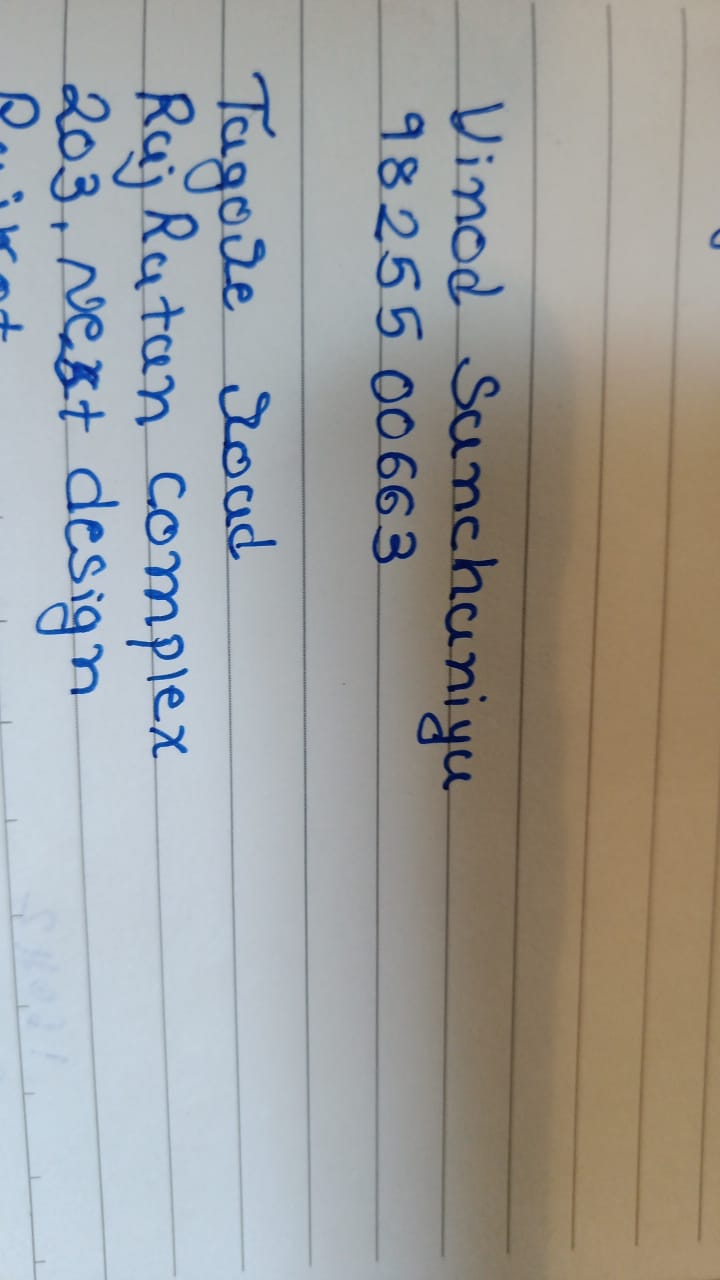 Vinod Sanchaniya
98255 00663
Tagore road
Raj Ratan complex
203, Next design
Rajkot